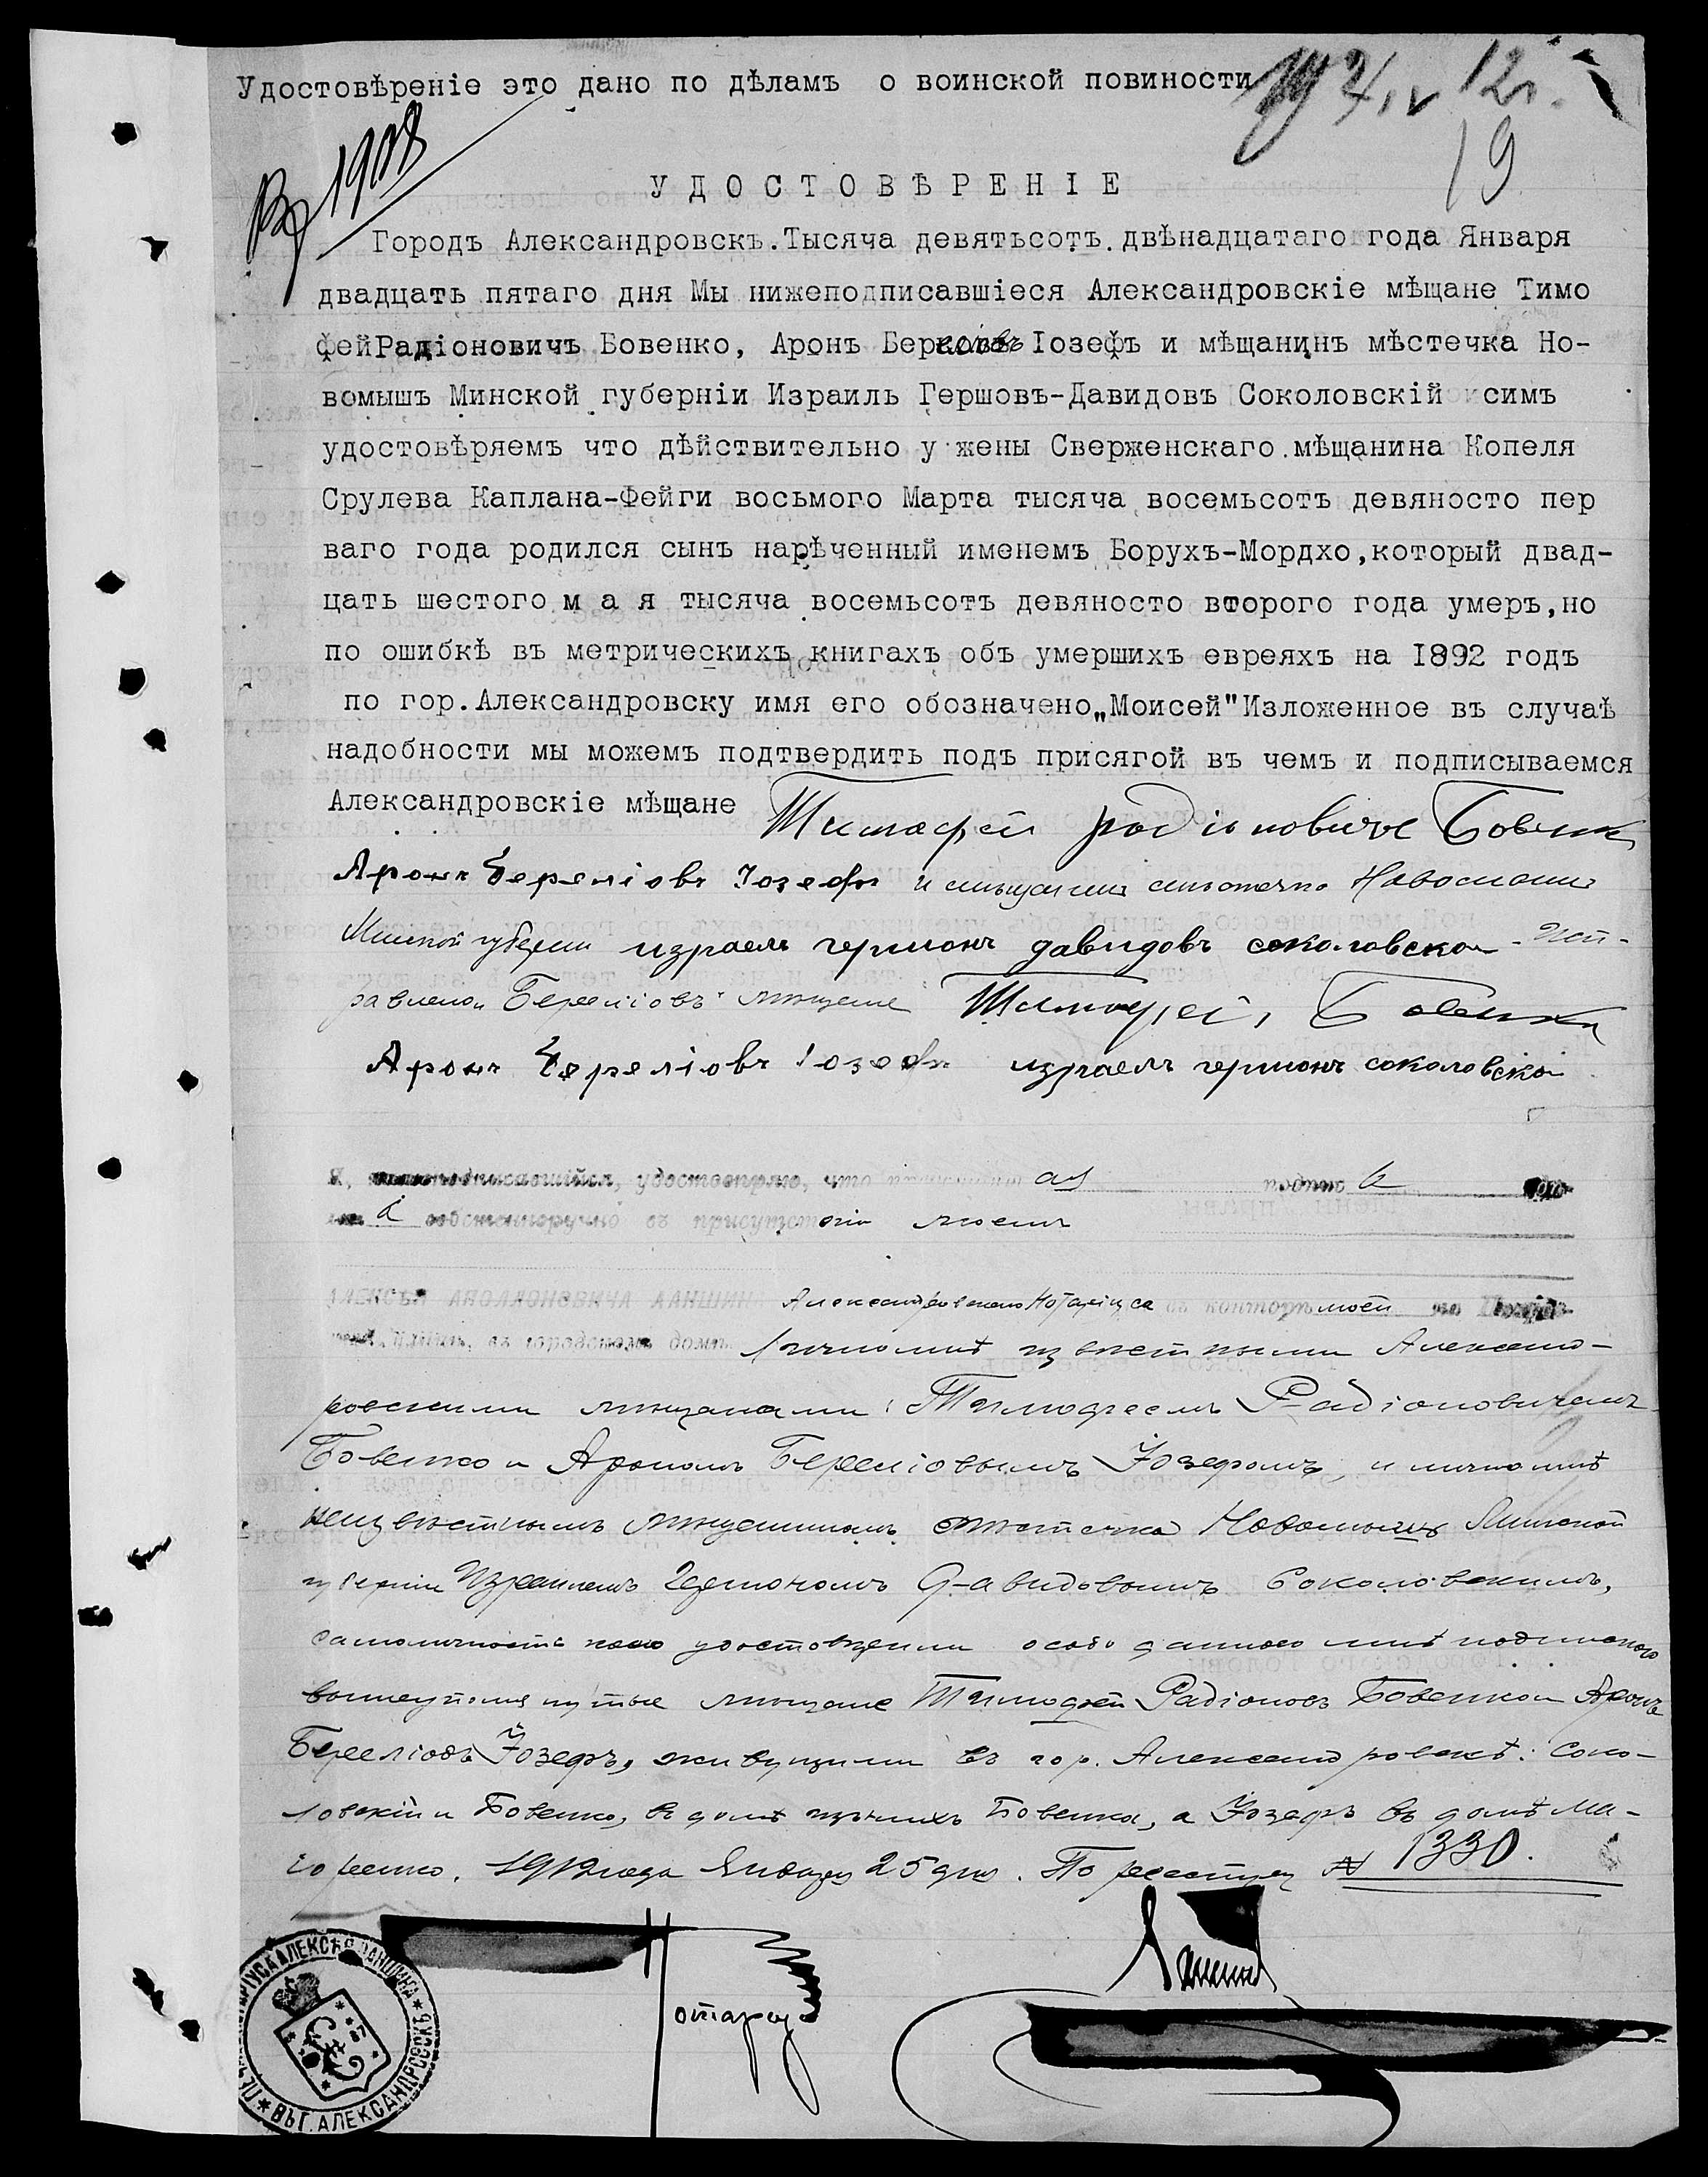 Удостовѣреніе это дано по дѣламъ о воинской повиности
12г.
19
Вх 1908
УДОСТОВѢРЕНІЕ
Городъ Александровскъ.Тысяча девятьсотъ двѣнадцатаго года Января
двадцать пятаго дня Мы нижеподписавшіеся Александровскіе мѣщане Тимо
фейРадіоновичъ Бовенко, Аронъ Іозефъ и мѣщанинъ мѣстечка Но-
вомышъ Минской губерніи Израиль Гершовъ-Давидовъ Соколовскій симъ
удостовѣряемъ что дѣйствительно у жены Сверженскаго мѣщанина Копеля
Срулева Каплана-Фейги восьмого Марта тысяча восемьсотъ девяносто пер
ваго года родился сынъ нарѣченный именемъ Борухъ-Мордхо,который двад-
цать шестого м а я тысяча восемьсотъ девяносто второго года умеръ,но
по ошибкѣ въ метрическихъ книгахъ объ умершихъ евреяхъ на 1892 годъ
по гор.Александровску имя его обозначено„Моисей"Изложенное въ случаѣ
надобности мы можемъ подтвердить подъ присягой въ чемъ и подписываемся
Александровскіе мѣщане Тимофей Бовенк
Аронъ Береліовъ Іозефъ и
Минской губерніи израель гершонъ давидовъ соколовской Исп-
равленом Береліовъ мѣщане Тимофей Бовенко
Аронъ Береліовъ Іозефъ израель гершонъ соколовской
Я, удостовѣряю, что
въ присутствіи моемъ
Александровскаго Нотаріуса въ конторѣ моей
въ домѣ лично мнѣ извѣстными Александ-
ровскими мѣщанами: Тимофеемъ Радіоновичемъ
Бовенко и Арономъ Береліовымъ Іозефомъ, и лично мнѣ
неизвѣстнымъ мѣщаниномъ мѣстечка Новомышъ Минской
губерніи Израилемъ Гершономъ Давидовымъ Соколовскимъ,
самоличность коего удостовѣрили особо данного мнѣ подпискою
вышеупомянутые мѣщане Тимофей Радіоновъ Бовенко и Аронъ
Береліовъ Іозефъ, живущими въ гор. Александровскѣ: Соко-
ловскій и Бовенко, въ домѣ Бовенка, а Іозефъ въ домѣ Ма-
1912 года Января 25 дня. По реестру № 1330.
Нотаріусъ
ВЪ Г. АЛЕКСАНДРОВСКЪ